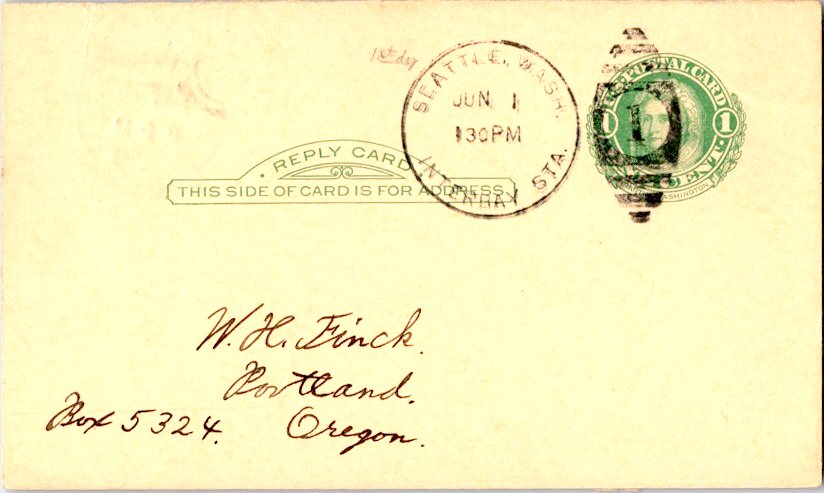 1st day
SEATTLE, WASH.
JUN 1
130PM
INTERBAY STA.
1
U.S. POSTAL CARD
1 1
CENT
WASHINGTON
REPLY CARD
THIS SIDE OF CARD IS FOR ADDRESS
W. H. Finck.
Portland.
Box 5324. Oregon.